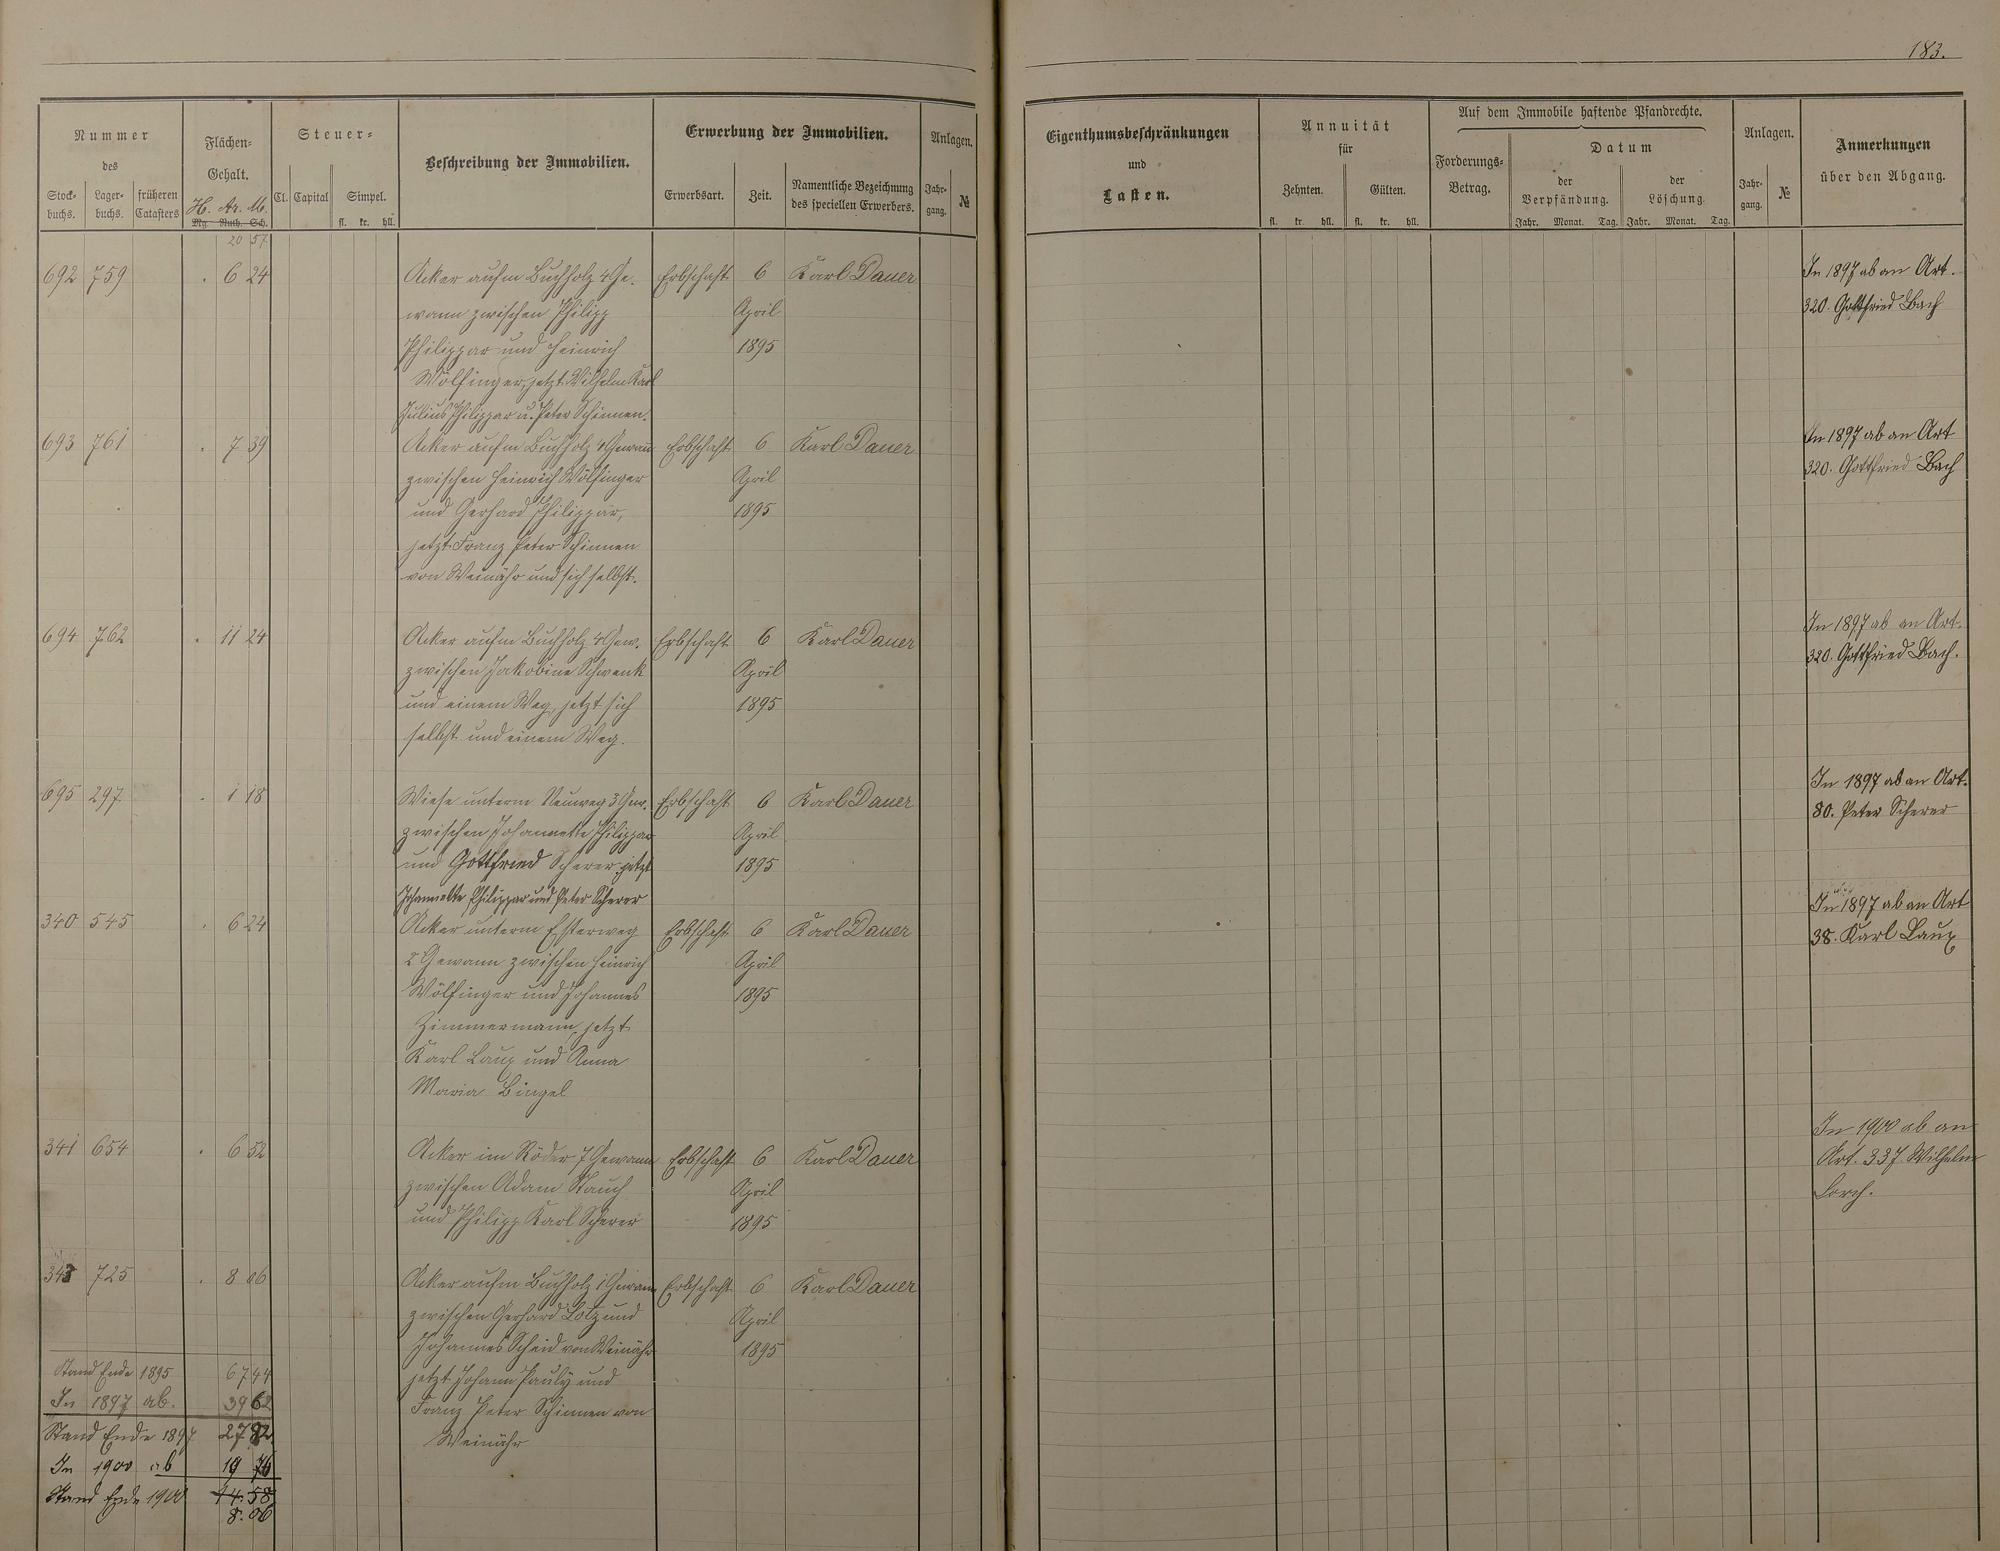 183.
Nummer
des
Stock-
buchs.
Lager-
buchs.
früheren
Catasters
Flächen-
Gehalt.
H. Ar. M.
Mg. Ruth. Sch.
Steuer-
Cl. Capital Simpel.
fl. kr. hll.
Beschreibung der Immobilien.
Erwerbung der Immobilien.
Erwerbsart. Zeit.
Namentliche Bezeichnung
des speciellen Erwerbers.
Anlagen.
Jahr-
gang.
№
Eigenthumsbeschränkungen
und
Lasten.
Annuität
für
Zehnten. Gülten.
fl. kr. hll. fl. kr. hll.
Auf dem Immobile haftende Pfandrechte.
Forderungs-
Betrag.
Datum
der
Verpfändung.
der
Löschung.
Jahr. Monat. Tag. Jahr. Monat. Tag.
Anlagen.
Jahr-
gang.
№
Anmerkungen
über den Abgang.
20 57
692 759 . 6 24 Acker aufm Buchholz 4 Ge- Erbschaft 6 Karl Dauer In 1897 ab an Art.
wann zwischen Philipp April 320. Gottfried Bach
Philippar und Heinrich 1895
Wölfinger, jetzt Wilhelm Karl
Julius Philippar u. Peter Schinnen.
693 761 . 7 39 Acker aufm Buchholz 4 Gewann Erbschaft 6 Karl Dauer In 1897 ab an Art
zwischen Heinrich Wölfinger April 320. Gottfried Bach
und Gerhard Philippar, 1895
jetzt Franz Peter Schinnen
von Weinähr und sich selbst.
694 762 . 11 24 Acker aufm Buchholz 4 Gew. Erbschaft 6 Karl Dauer In 1897 ab an Art.
zwischen Jakobine Schwenk April 320. Gottfried Bach.
und einem Weg, jetzt sich 1895
selbst und einem Weg.
695 297 . 1 18 Wiese unterm Neuweg 3 Gew. Erbschaft 6 Karl Dauer In 1897 ab an Art.
zwischen Johannette Philippar April 80. Peter Scherer
und Gottfried Scherer jetzt 1895
Johannette Philippar und Peter Scherer
340 545 . 6 24 Acker unterm Esterweg Erbschaft 6 Karl Dauer In 1897 ab an Art
2 Gewann zwischen Heinrich April 38. Karl Laux
Wölfinger und Johannes 1895
Zimmermann, jetzt
Karl Laux und Anna
Maria Bingel
341 654 . 6 52 Acker im Röder 7 Gewann Erbschaft 6 Karl Dauer In 1900 ab an
zwischen Adam Stauch April Art. 337. Wilhelm
und Philipp Karl Scherer 1895 Lorch.
343 725 . 8 06 Acker aufm Buchholz 1 Gewann Erbschaft 6 Karl Dauer
zwischen Gerhard Lotz und April
Johannes Scheid von Weinähr 1895
jetzt Johann Pauly und
Franz Peter Schinnen von
Weinähr
Stand Ende 1895 67 44
In 1897 ab. 39 62
Stand Ende 1897 27 82
In 1900 ab 19 76
Stand Ende 1900 14. 58
8. 06